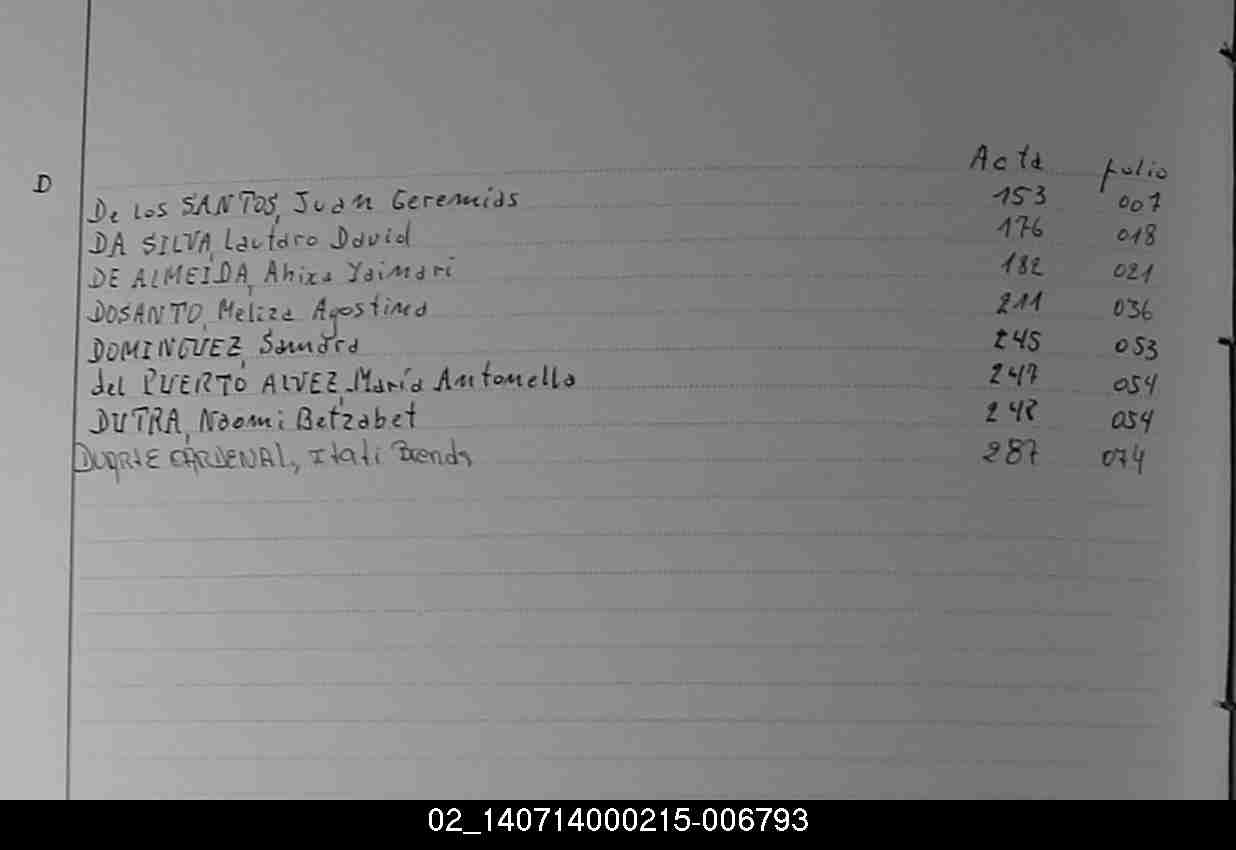 Acta folio
D
De Los SANTOS, Juan Geremias 153 007
DA SILVA, Lautaro David 176 018
DE ALMEIDA, Ahixa Yaimari 182 021
DOSANTO, Meliza Agostina 211 036
DOMINGUEZ, Samara 245 053
del PUERTO ALVEZ, María Antonella 247 054
DUTRA, Naomi Betzabet 248 054
DUARTE CARDENAL, Itati Brenda 287 074
02_140714000215-006793